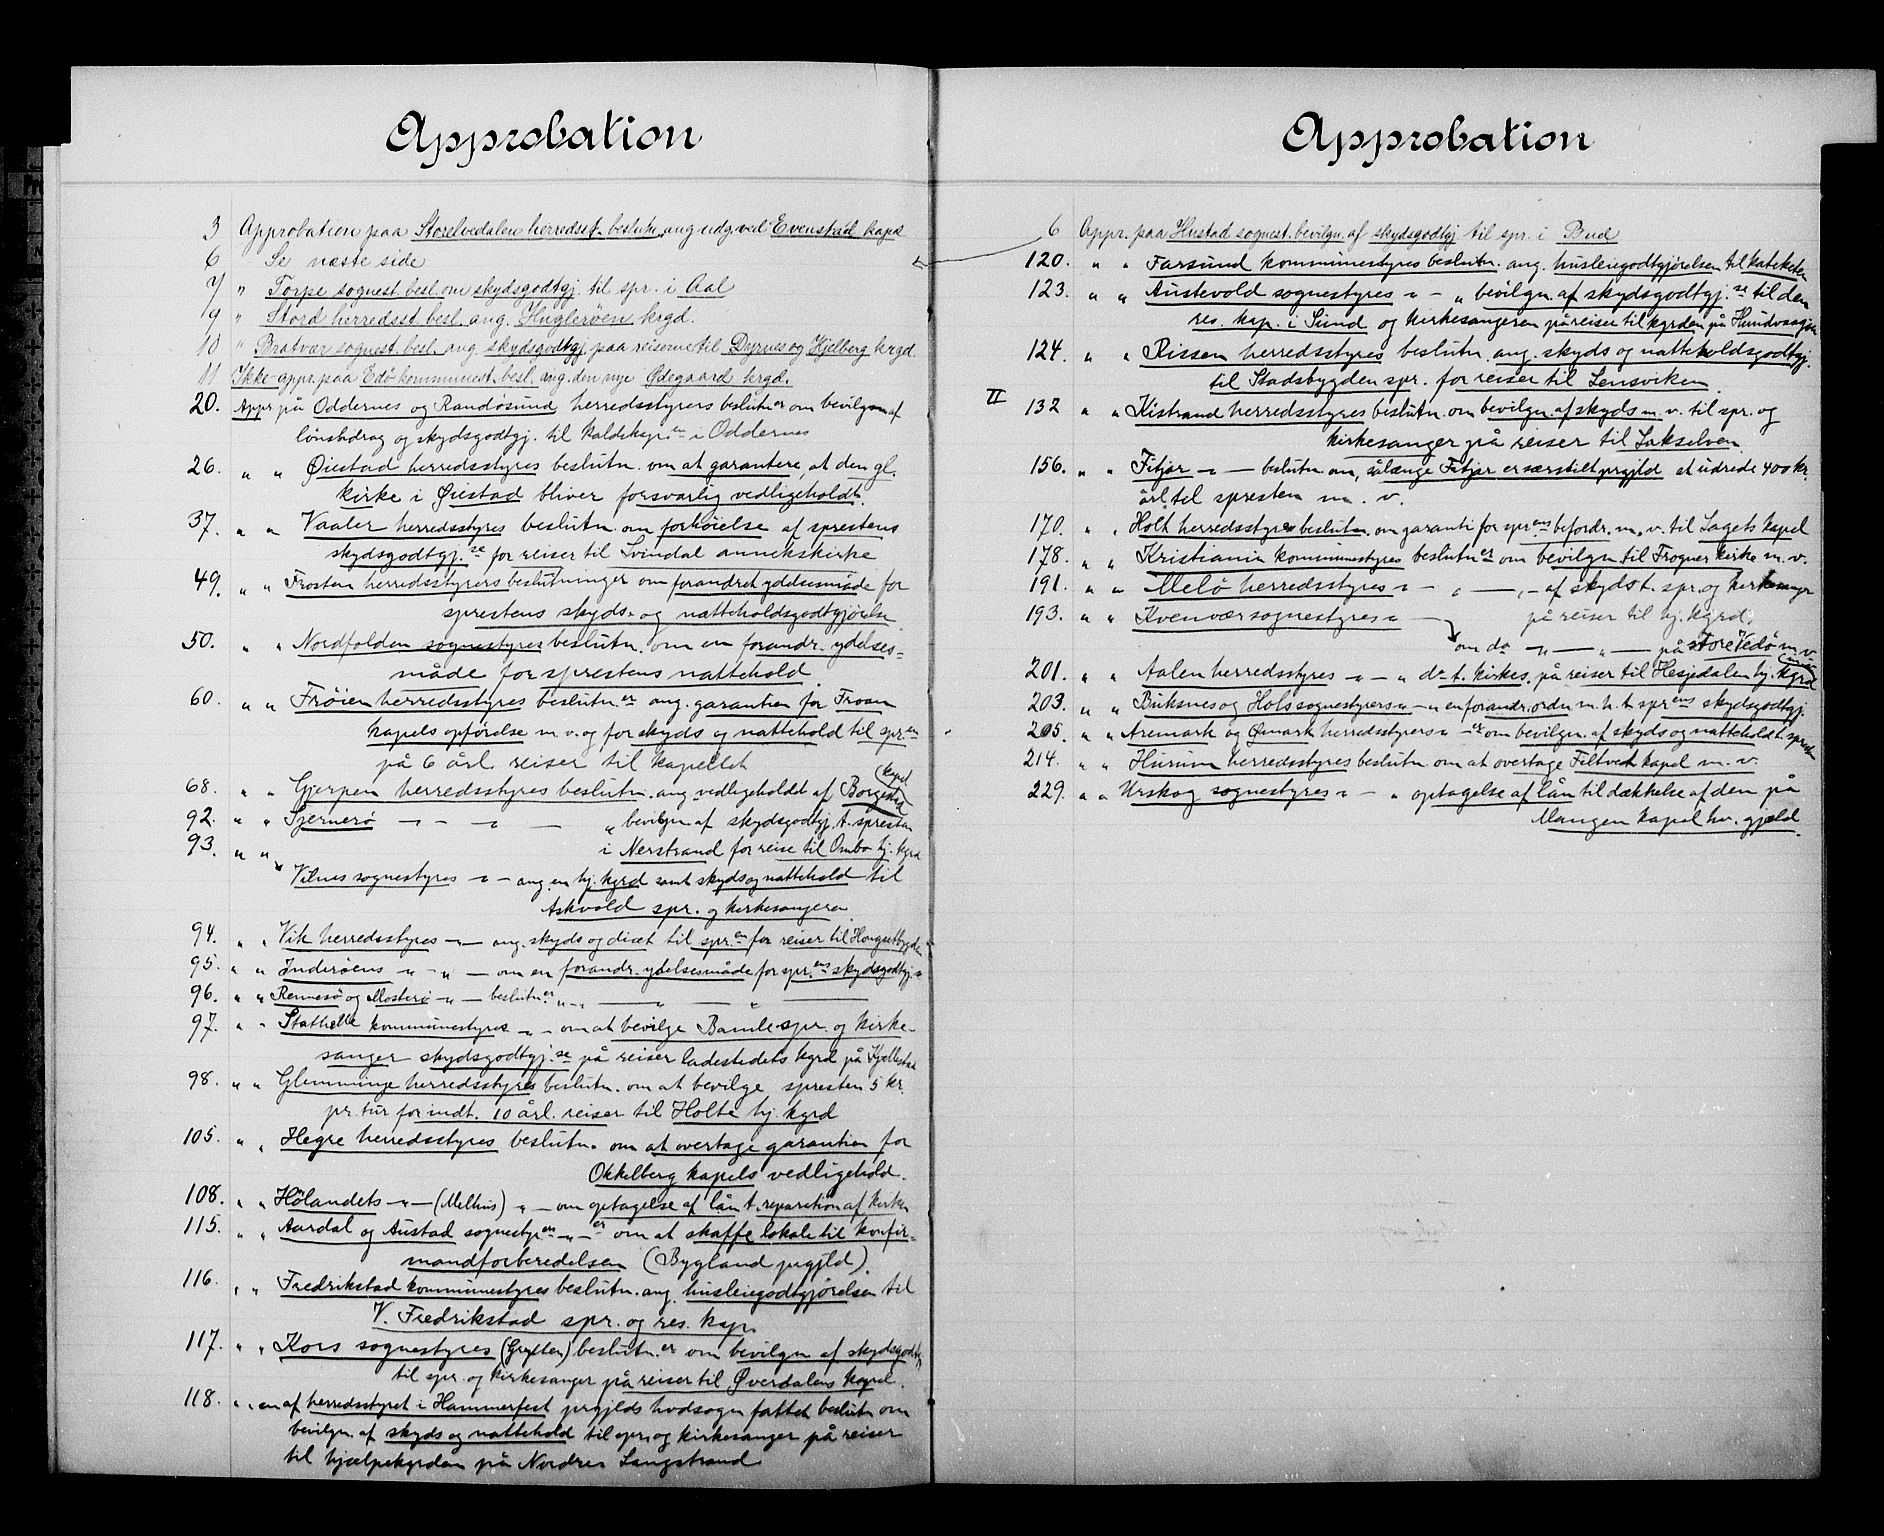 Approbation
3 Approbation paa Storelvedalen herredsst. beslutn. ang. udg. ved Evenstad kapel
6 " Se næste side
7 " Torpe sognest. besl. om skydsgodtgj. til spr. i Aal
9 " Stord herredsst. besl. ang. Huglerøen krgd.
10 " Bratvær sognest. besl. ang. skydsgodtgj. paa reiserne til Dyrnes og Hjelberg krgd
11 Ikke-appr. paa Edö kommunest. besl. ang. den nye Ødegaard krgd.
20. Appr på Oddernes og Randøsund herredsstyrers beslutn.er om bevilgn af
lønsbidrag og skydsgodtgj. til kaldskap.en i Oddernes
26. " " Øiestad herredsstyres beslutn. om at garantere, at den gl.
kirke i Øiestad bliver forsvarlig vedligeholdt.
37. " " Vaaler herredsstyres beslutn om forhøielse af sprestens
skydsgodtgj.se for reiser til Svindal annekskirke
49. " " Frosten herredsstyrers beslutninger om forandret ydelsesmåde for
sprestens skyds- og natteholdsgodtgjørelse
50. " " Nordfolden sognestyres beslutn. om en forandr. ydelses=
måde for sprestens nattehold
60. " " Frøien herredsstyres beslutn.er ang. garantien for Froan
kapels opførelse m.v. og for skyds og nattehold til spr.en
på 6 årl. reiser til kapellet
68. " " Gjerpen herredsstyres beslutn. ang. vedligeholdet af Borgestad (kapel
92. " " Sjernerø - " - " bevilgn af skydsgodtgj. t. spresten
93. " " i Nerstrand for reise til Ombo hj. kgrd
Vilnes sognestyres - " - ang. en hj. kgrd samt skyds og nattehold til
Askvold spr. og kirkesangeren
94. " " Vik herredsstyres - " - ang. skyds og diæt til spr.en for reiser til Hongsetbygden
95. " " Inderøens - " - " - om en forandr. ydelsesmåde for spr.ens skydsgodtgj.
96. " " Rennesø og Mosterø - " - beslutn.er " - " - " -
97. " " Stathelle kommunestyres - " - om at bevilge Bamle spr. og kirke-
sanger skydsgodtgj.se på reiser ladestedets kgrd på
98. " " Glemminge herredsstyres beslutn. om at bevilge spresten 5 kr.
pr. tur for indt. 10 årl. reiser til Holte hj. kgrd
105. " " Hegre herredsstyres beslutn. om at overtage garantien for
Okkelberg kapels vedligehold.
108. " " Hölandets - " - (Melhus) " - om optagelse af lån t. reparation af kirken
115. " " Aardal og Austad sognesty.es - " - er om at skaffe lokale til konfir-
mandforberedelsen (Bygland prgjld).
116. " " Fredrikstad kommunestyres beslutn. ang. husleiegodtgjørelsen til
V. Fredrikstad spr. og res. kap.
117. " " Kors sognestyres (Grytten) beslutn.er om bevilgn af skydsgodtgj.
til spr. og kirkesanger på reiser til Øverdalens kapel.
118. " " en af herredsstyret i Hammerfest prgjlds hvdsogn fattet beslutn om
bevilgn. af skyds og nattehold til spr. og kirkesanger på reiser
til hjælpekgrden på Nordre Langstrand
Approbation
6 Appr. paa Hustad sognest. bevilgn. af skydsgodtgj til spr. i Bud
120. " " Farsund kommunestyres beslutn. ang. husleiegodtgjörelsen til kateketen
123. " " Austevold sognestyres - " - " bevilgn. af skydsgodtgj.se til den
res. kap. i Sund og kirkesangeren på reiser til kgrden på
124. " " Rissen herredsstyres beslutn. ang. skyds og natteholdsgodtgj.
til Stadsbygden spr. for reiser til Lensviken
II 132 " " Kistrand herredsstyres beslutn. om bevilgn. af skyds m.v. til spr. og
kirkesanger på reiser til Lakselven
156. " " Fitjar - " - beslutn. om, sålænge Fitjar er særskilt prgjld at udrede 400 kr.
årl. til spresten m.v.
170. " " Holt herredsstyres beslutn. om garanti for spr.ens befordr. m.v. til Lagets kapel
178. " " Kristiania kommunestyres beslutn.er om bevilgn til Frogner kirke m.v.
191. " " Melö herredsstyres - " - " - " - af skyds t. spr. og kirkesanger
193. " " Kvenvær sognestyres - " på reiser til hj. kgrd.
om do - " - " - på store Vedø m.v.
201. " " Aalen herredsstyres - " - " do t. kirkes. på reiser til Hesjedalen hj. kgrd
203. " " Buksnes og Hols sognestyrers - " - " en forandr. ordn m.h.t. spr.ens skydsgodtgj.
205. " " Aremark og Ømark herredsstyrers - " - er om bevilgn. af skyds og nattehold t. spresten
214. " " Hurum herredsstyres beslutn. om at overtage Filtvet kapel m.v.
229. " " Urskog sognestyres - " - " optagelse af lån til dækkelse af den på
Mangen kapel hv. gjæld.